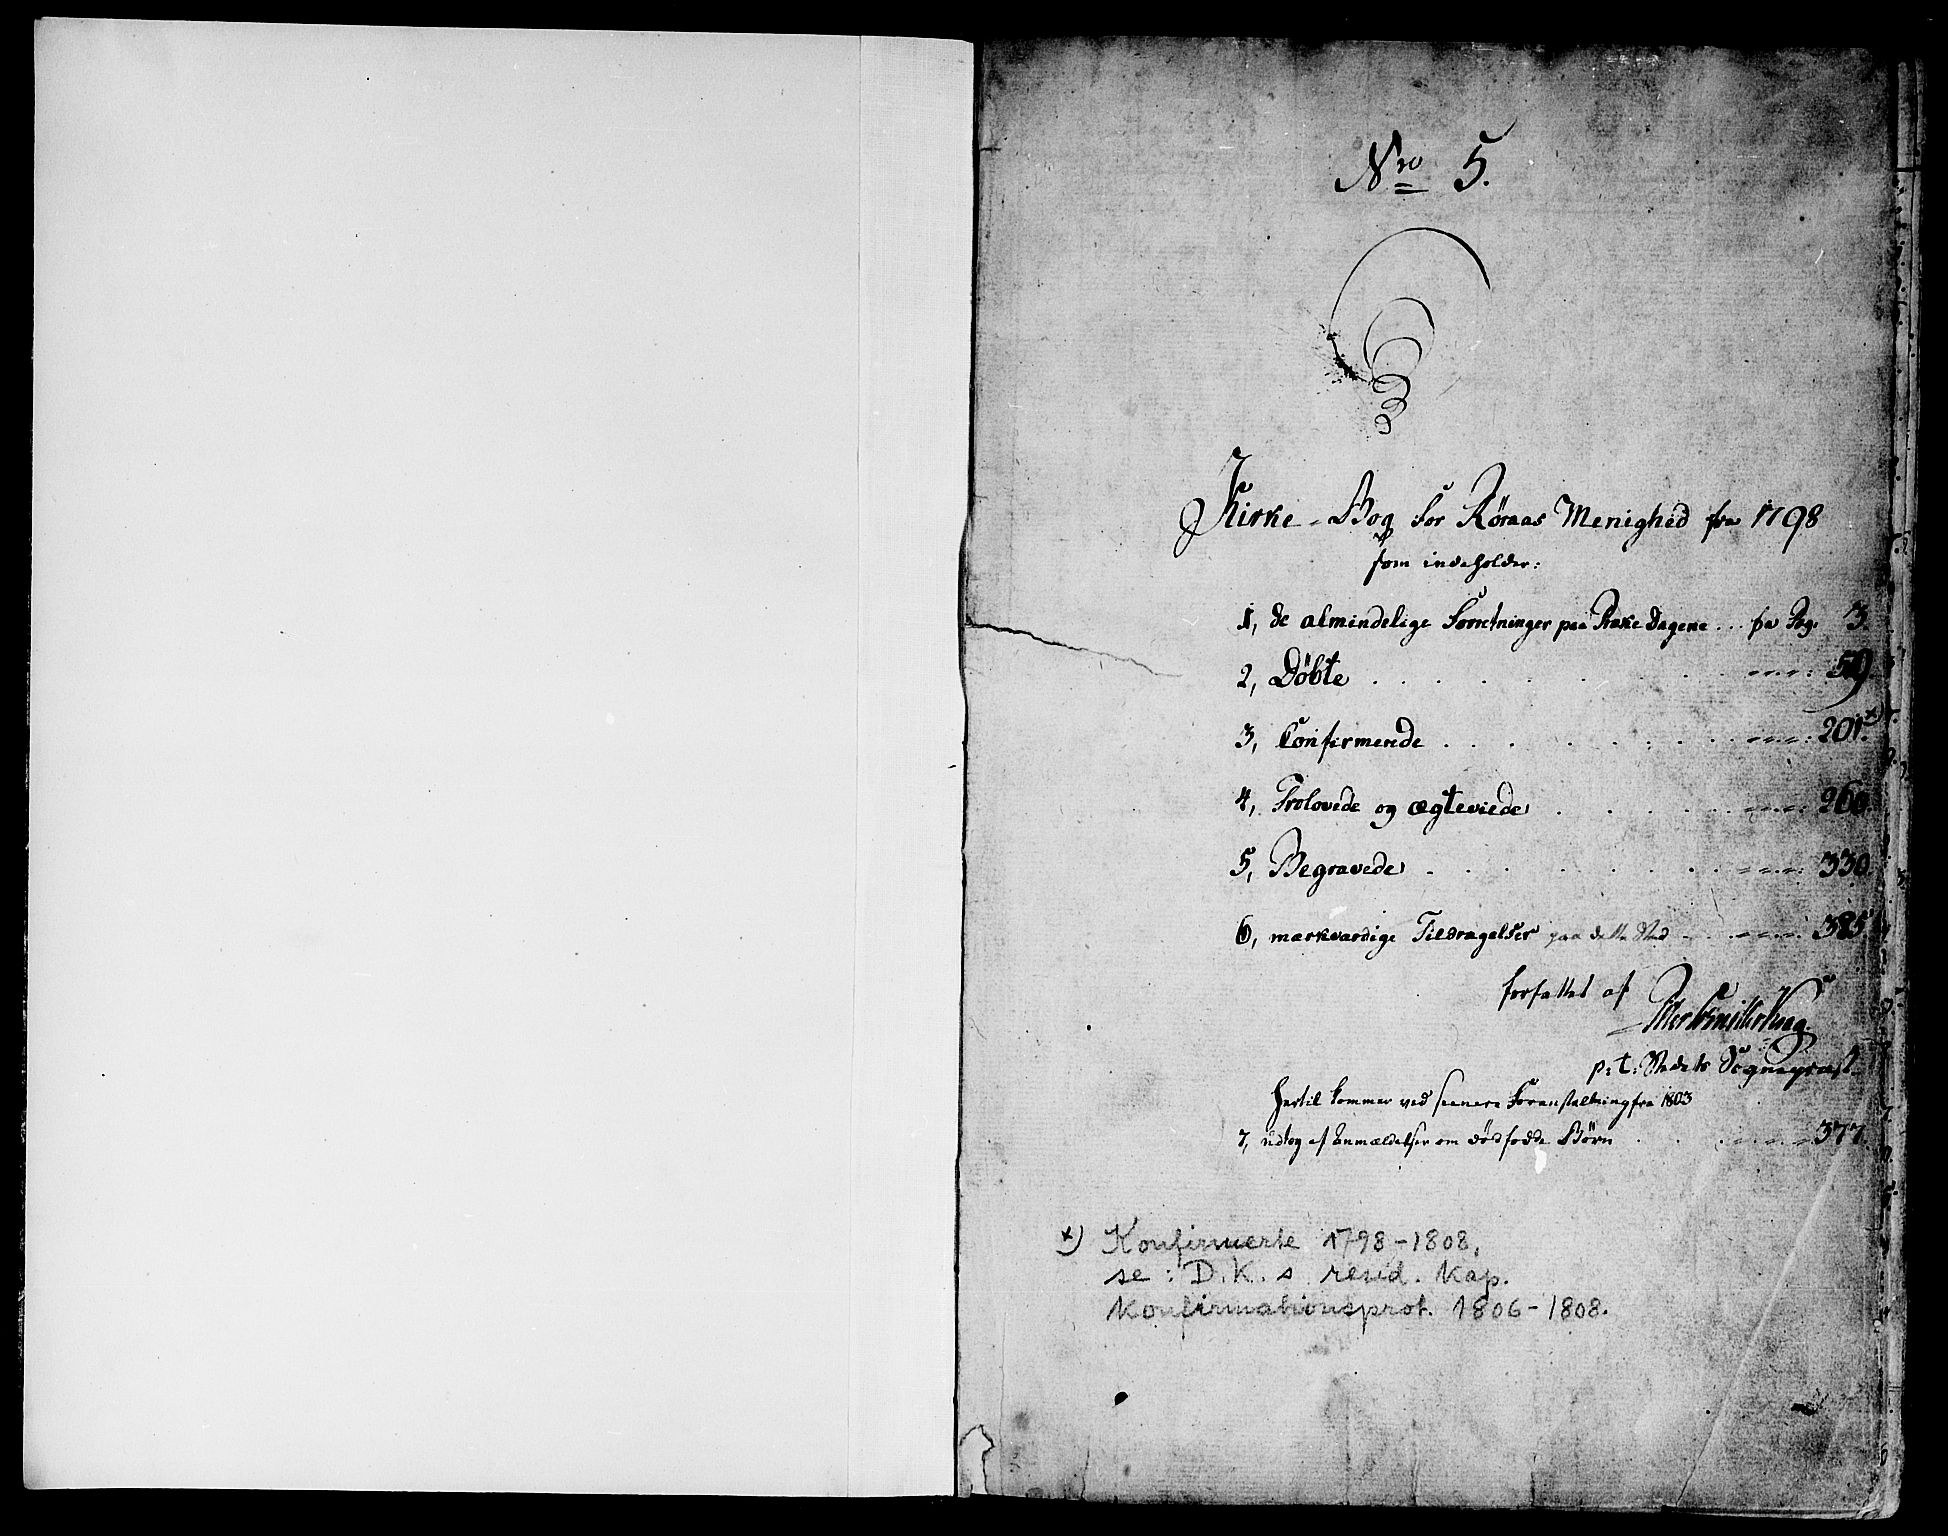 Nro 5.
Kirke-Bog for Røraas Menighed fra 1798
som indeholder:
1, de almindelige Forretninger paa Præke Dagene ... fra Pag. 3.
2, Døbte . . . . . . . 59
3, Confirmerede . . . . . . . 201. *)
4, Trolovede og ægteviede . . . . . 260.
5, Begravede . . . . . . . 330.
6, mærkværdige Tildragelser paa dette Sted 385
forfattet af
p: t: Stedets Sognepræst
hertil kommer ved seenere Foranstaltning fra 1803
7, udtog af Anmældelser om dødfødde Børn . . . 377.
*) Konfirmerte 1798-1808,
se: D.K.s resid. Kap.
Konfirmationsprot. 1806-1808.